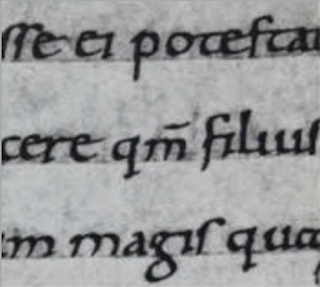 sse ei potestat
cere qm̄ filius
im magis qua